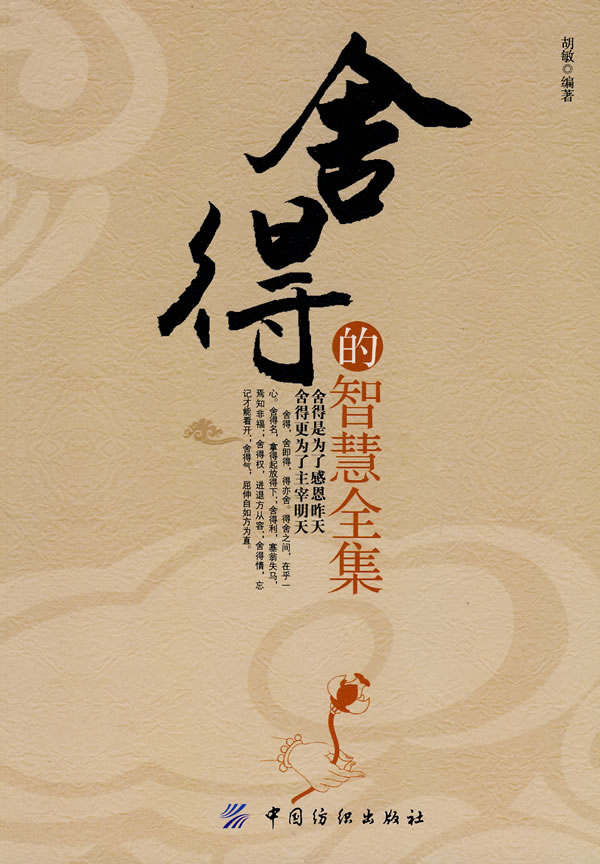 胡敏◎编著
舍得
的智慧全集
舍得是为了感恩昨天
舍得更为了主宰明天
舍得，舍即得，得亦舍。得舍之间，在乎一
心。舍得名，拿得起放得下；舍得利，塞翁失马，
焉知非福；舍得权，进退方从容；舍得情，忘
记才能看开；舍得气，屈伸自如方为真。
中国纺织出版社